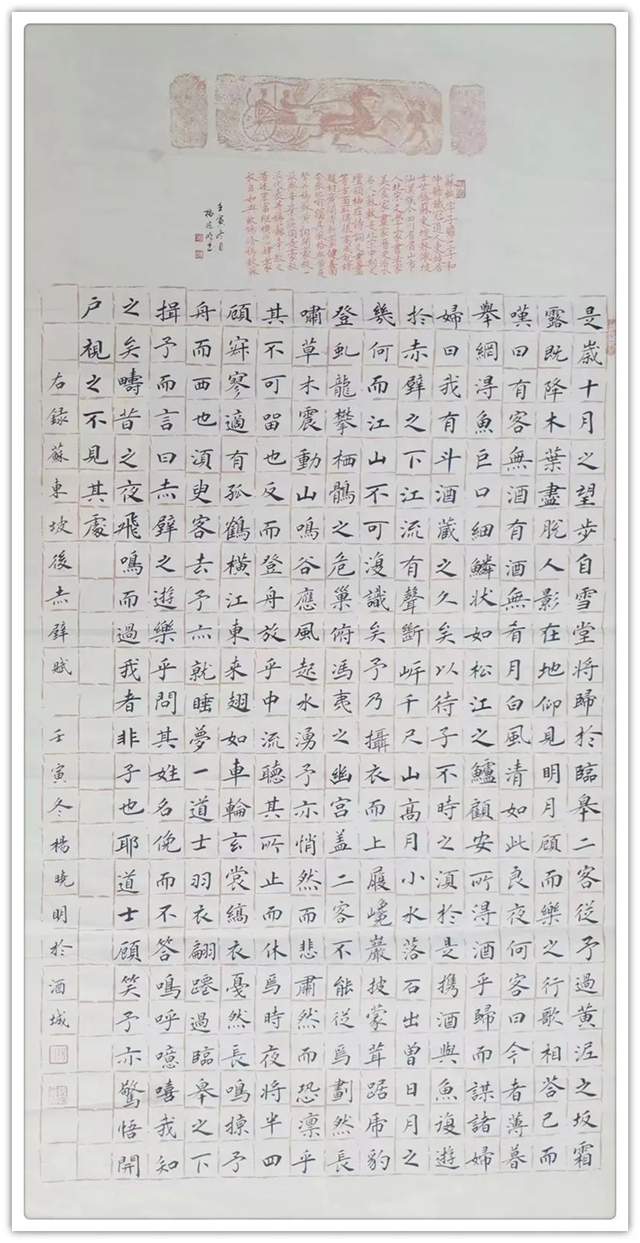 蘇軾字子瞻一字和
仲號鐵冠道人東坡居
士世稱蘇東坡蘇仙坡
仙漢族四川省眉山市
壬寅冬月
楊曉明書
是歲十月之望步自雪堂將歸於臨皋二客從予過黃泥之坂霜
露既降木葉盡脫人影在地仰見明月顧而樂之行歌相答已而
嘆曰有客無酒有酒無肴月白風清如此良夜何客曰今者薄暮
舉網得魚巨口細鱗狀如松江之鱸顧安所得酒乎歸而謀諸婦
婦曰我有斗酒藏之久矣以待子不時之須於是攜酒與魚復遊
於赤壁之下江流有聲斷岸千尺山高月小水落石出曾日月之
幾何而江山不可復識矣予乃攝衣而上履巉巖披蒙茸踞虎豹
登虬龍攀栖鶻之危巢俯馮夷之幽宮蓋二客不能從焉劃然長
嘯草木震動山鳴谷應風起水湧予亦悄然而悲肅然而恐凜乎
其不可留也反而登舟放乎中流聽其所止而休焉時夜將半四
顧寂寥適有孤鶴橫江東來翅如車輪玄裳縞衣戛然長鳴掠予
舟而西也須臾客去予亦就睡夢一道士羽衣翩躚過臨皋之下
揖予而言曰赤壁之遊樂乎問其姓名俛而不答嗚呼噫嘻我知
之矣疇昔之夜飛鳴而過我者非子也耶道士顧笑予亦驚悟開
戶視之不見其處
右錄蘇東坡後赤壁賦 壬寅冬楊曉明於酒城